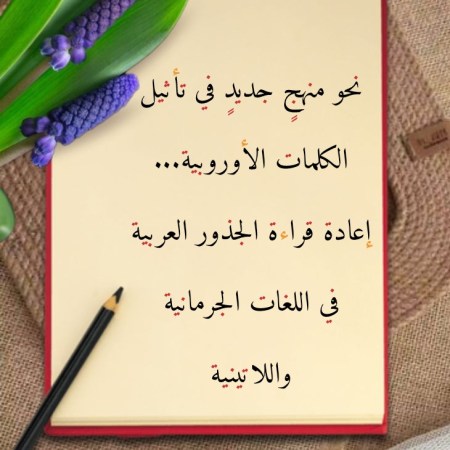 نحو منهجٍ جديدٍ في تأثيل
الكلمات الأوروبية...
إعادة قراءة الجذور العربية
في اللغات الجرمانية
واللاتينية